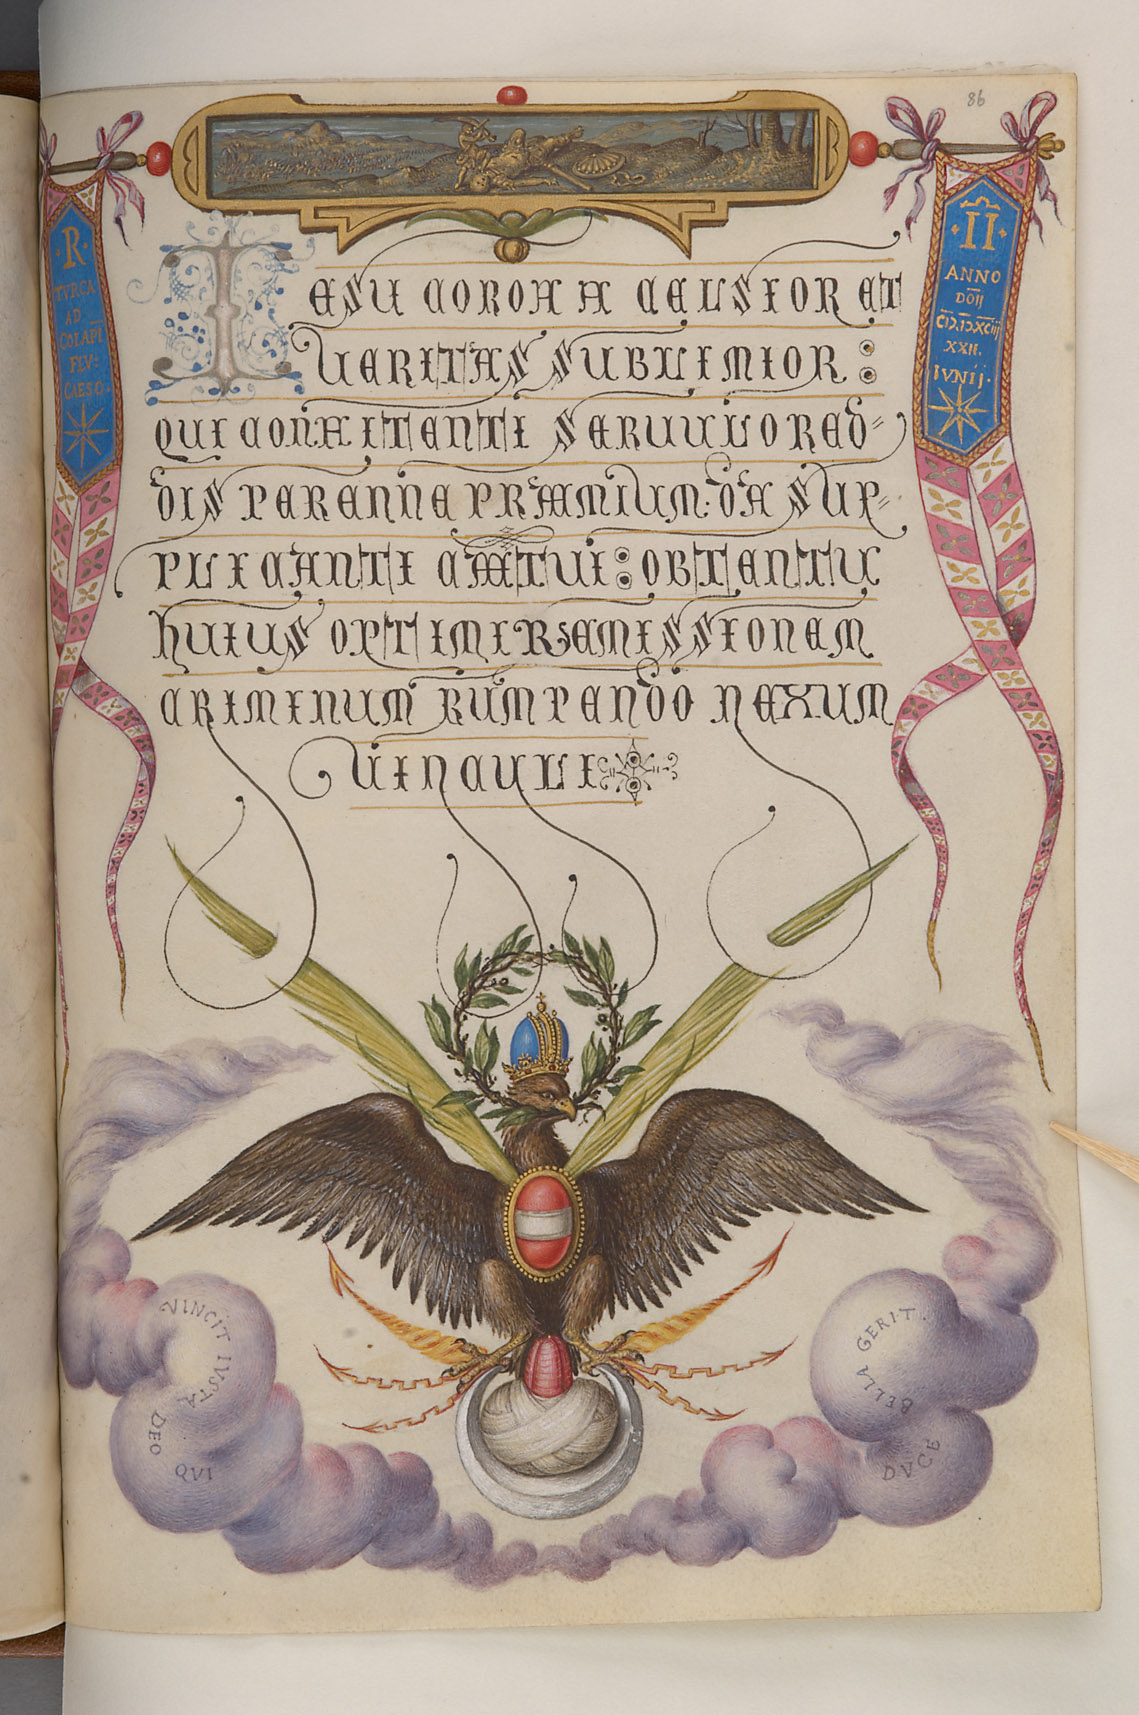 86
·R·
TVRCA
AD
COLAPI
FLV:
CAESO.
·II·
ANNO
DOII
CIↃ.IↃXCIII
XXII.
IVNIJ·
IESU CORONA CELSIOR ET
UERITAS SUBLIMIOR :
QUI CONFITENTI SERUULO RED=
DIS PERENNE PRÆMIUM: DA SUP=
PLICANTI CÆTUI : OBTENTU
HUIUS OPTIMI REMISSIONEM
CRIMINUM RUMPENDO NEXUM
UINCULI
VINCIT IVSTA
DEO
QVI
GERIT
BELLA
DVCE